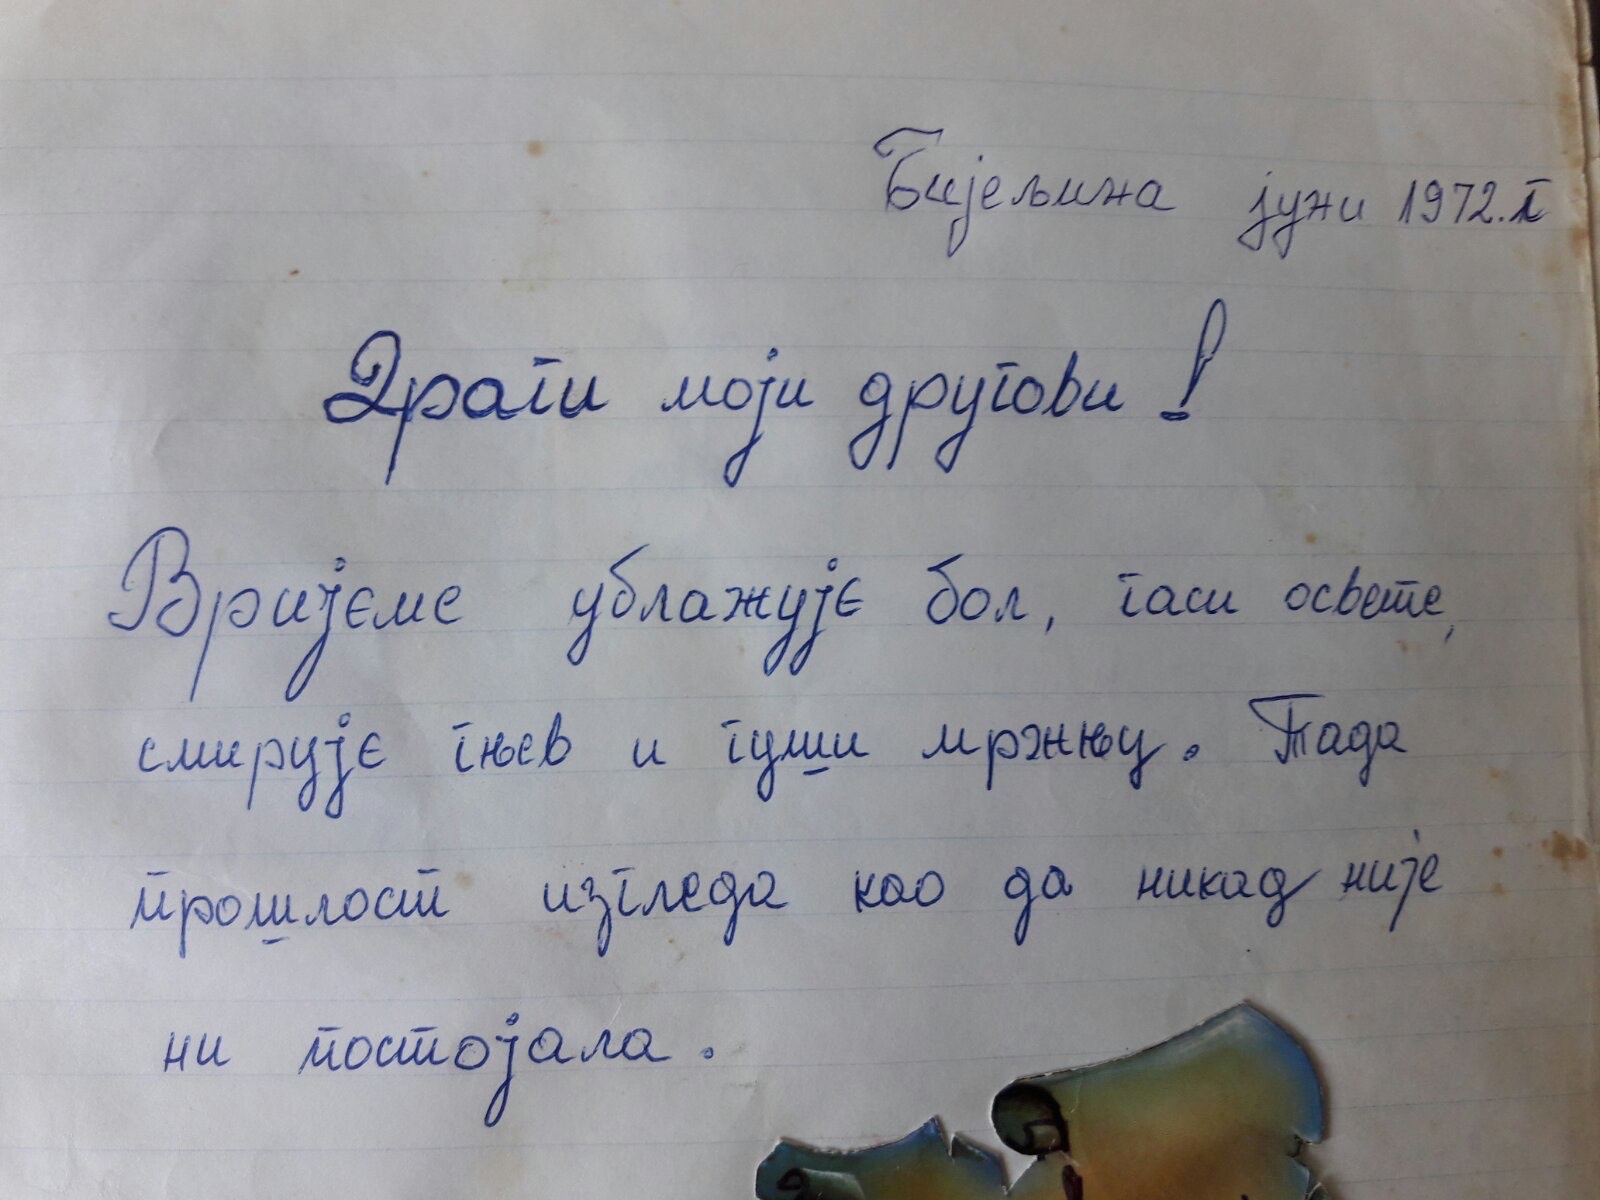 Бијељина јуни 1972.г
Драги моји другови!
Вријеме ублажује бол, гаси освете,
смирује гњев и гуши мржњу. Тада
прошлост изгледа као да никад није
ни постојала.